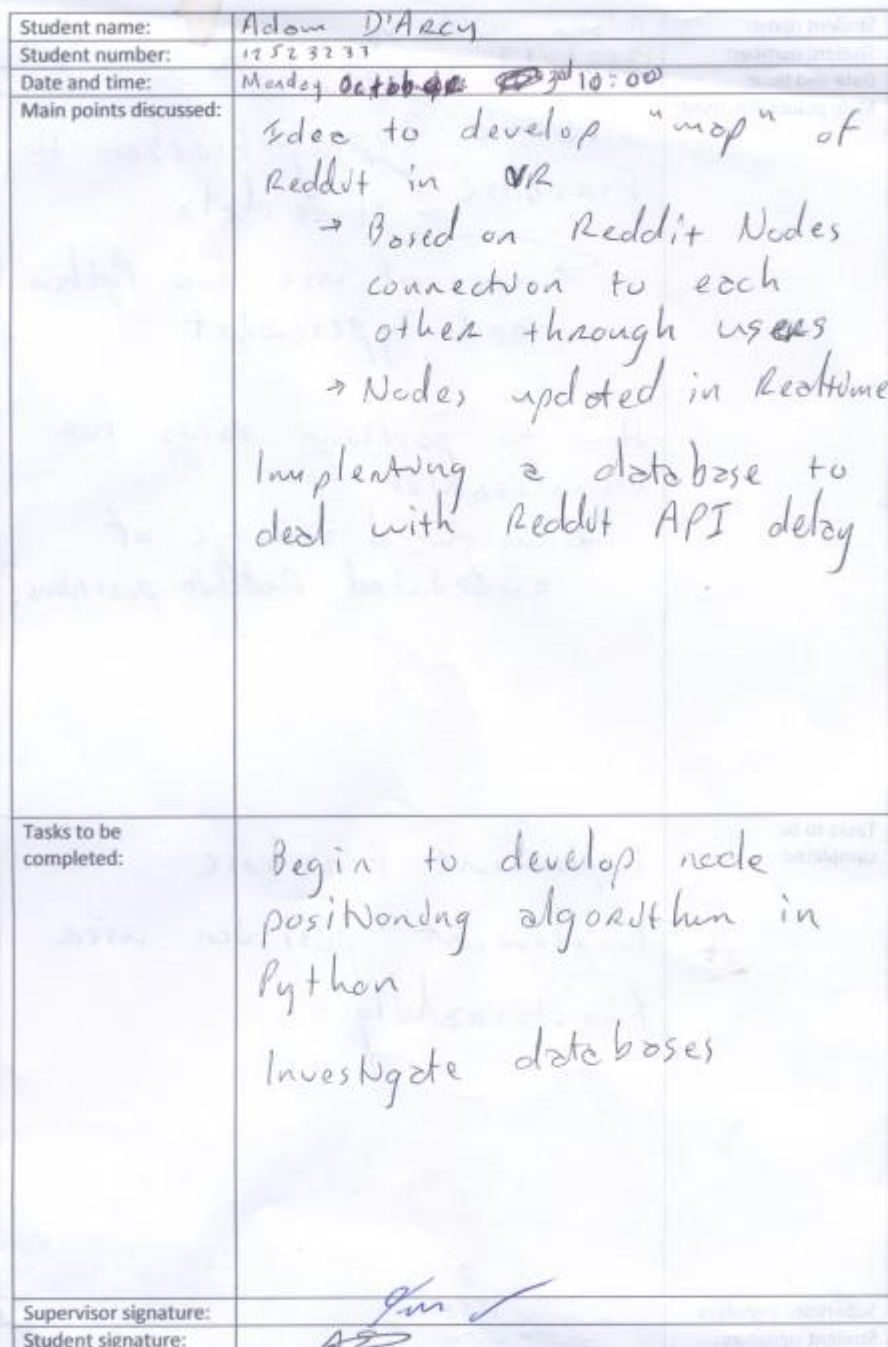 Student name: Adam D'Arcy
Student number: 12523233
Date and time: Monday October 3rd 10:00
Main points discussed:
Idea to develop "map" of
Reddit in VR
→ Based on Reddit Nodes
connection to each
other through users
→ Nodes updated in Realtime
Implenting a database to
deal with Reddit API delay
Tasks to be
completed:
Begin to develop node
positioning algorithm in
Python
Investigate databases
Supervisor signature:
Student signature: